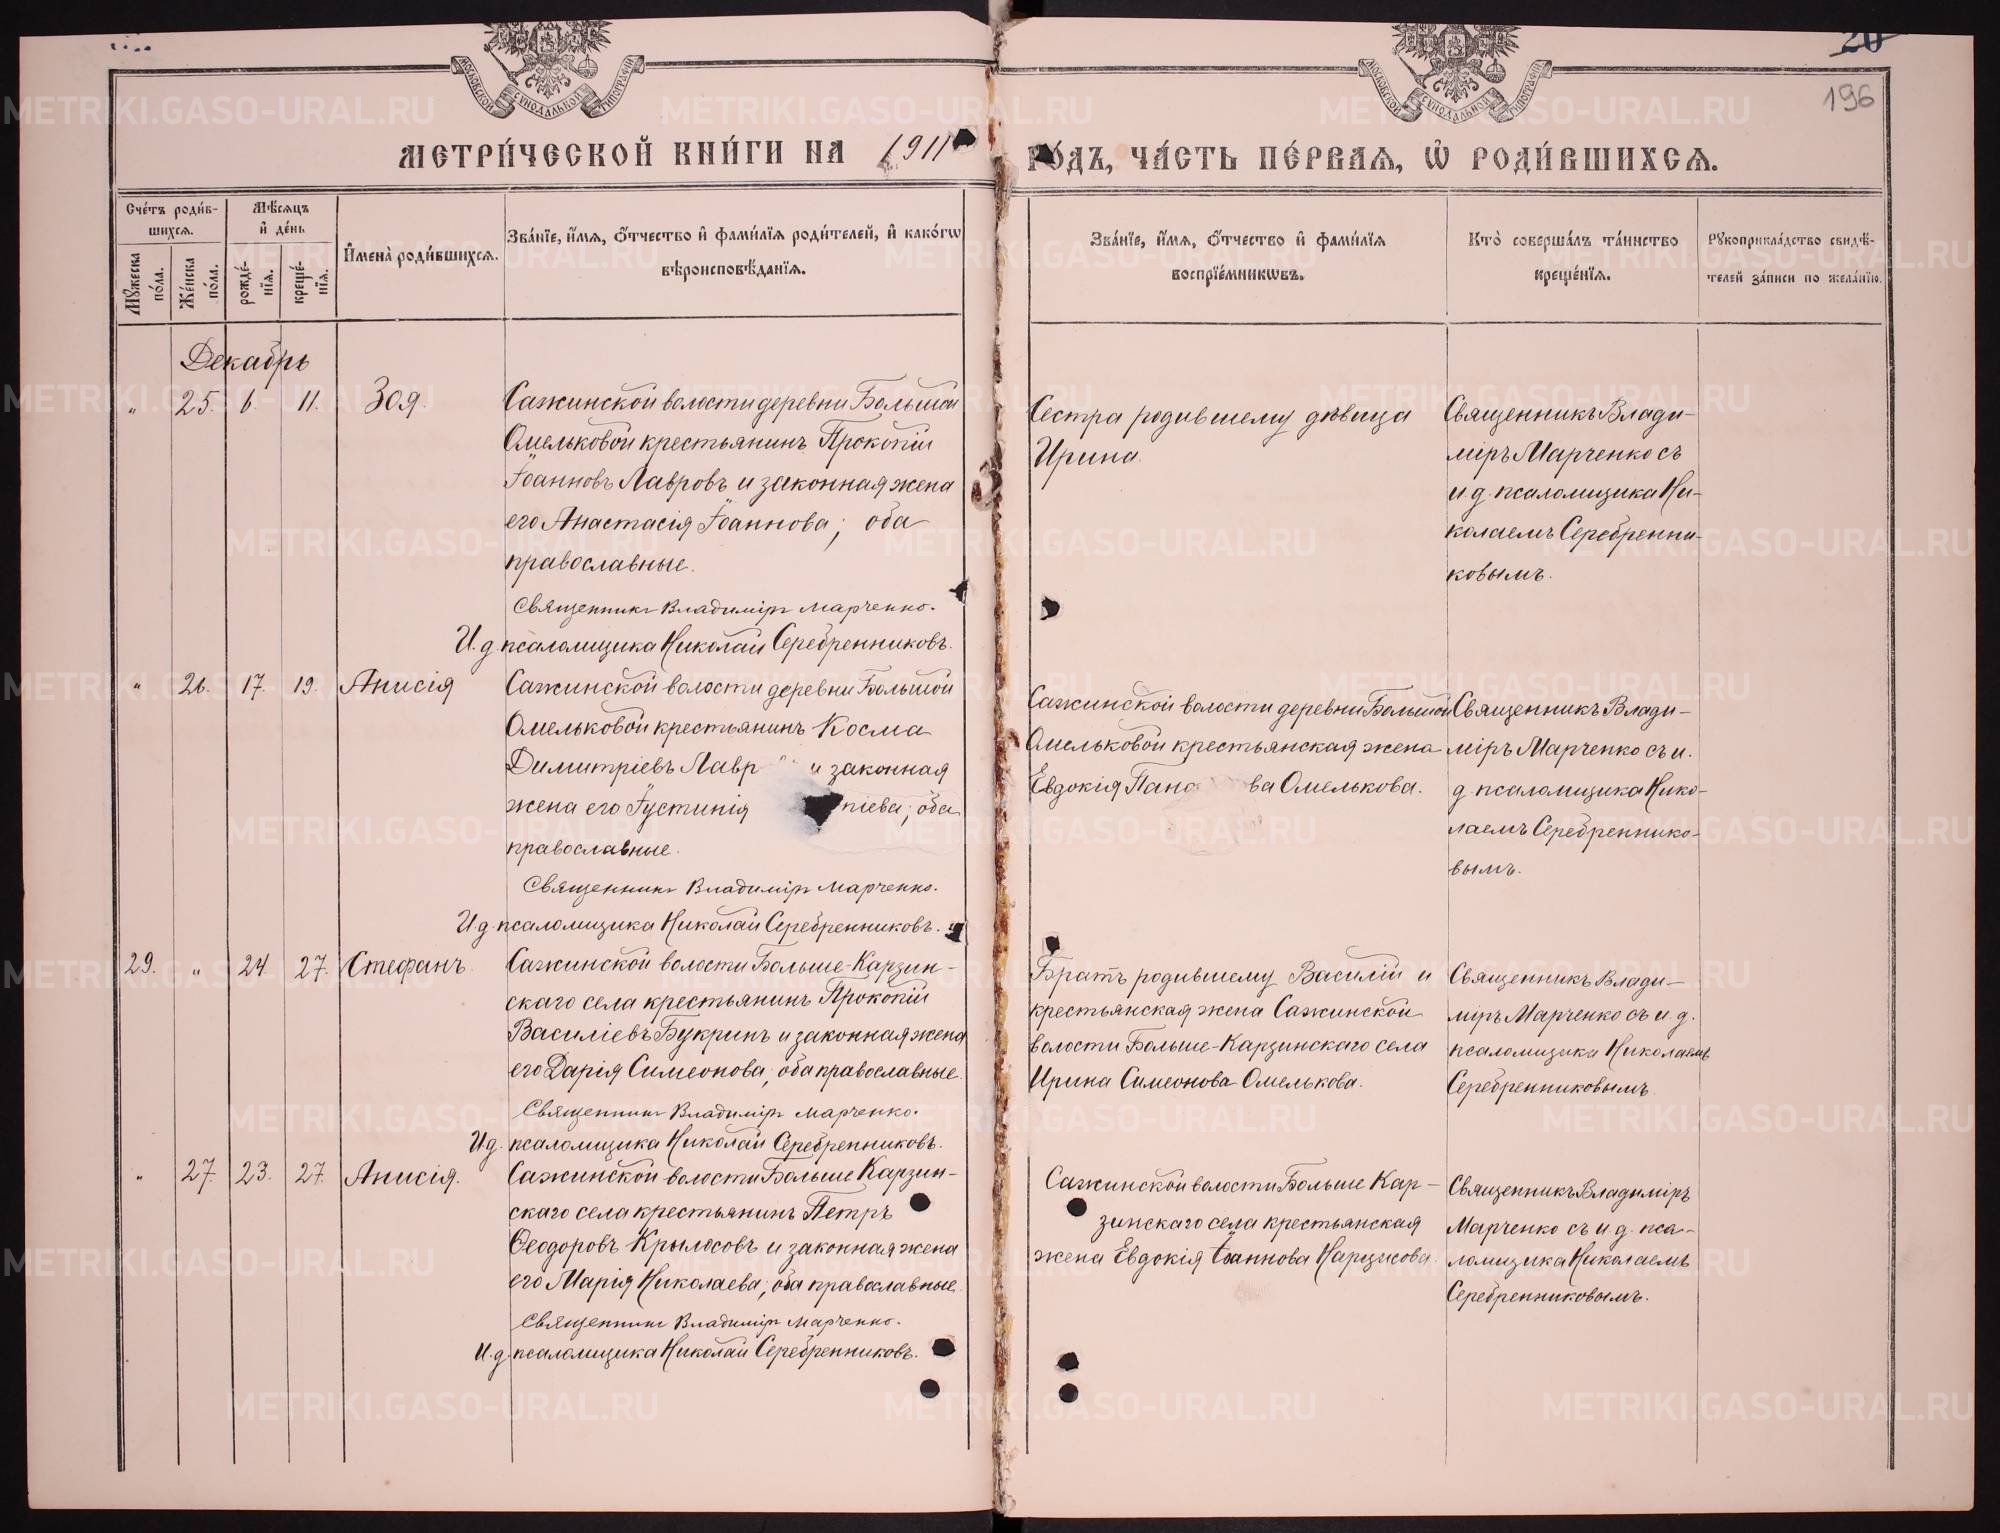 МОСКОВСКОЙ СѴНОДАЛЬНОЙ ТИПОГРАФІИ
МОСКОВСКОЙ СѴНОДАЛЬНОЙ ТИПОГРАФІИ
20
196
МЕТРИ́ЧЕСКОЙ КНИ́ГИ НА 1911
ГО́ДЪ, ЧА́СТЬ ПЕ́РВАѦ, Ѡ҆ РОДИ́ВШИХСѦ.
Сче́тъ роди́в-
шихсѧ.
Мѣ́сѧцъ
и҆ де́нь
Мꙋ́жеска
по́ла.
Же́нска
по́ла.
рожде́-
нїѧ.
креще́-
нїѧ.
И҆мена̀ роди́вшихсѧ.
Зва́нїе, и҆́мѧ, ѻ҆́тчество и҆ фами́лїѧ роди́телей, и҆ како́гѡ
вѣроисповѣ́данїѧ.
Зва́нїе, и҆́мѧ, ѻ҆́тчество и҆ фами́лїѧ
воспрїе́мникѡвъ.
Кто̀ соверша́лъ та́инство
креще́нїѧ.
Рꙋкоприкла́дство свидѣ́-
телей за́писи по жела́нїю.
Декабрь
„ 25. 6. 11. Зоя.
Сажинской волости деревни Большой
Омельковой крестьянинъ Прокопій
Іоанновъ Лавровъ и законная жена
его Анастасія Іоаннова; оба
православные.
Священникъ Владиміръ Марченко.
И. д. псаломщика Николай Серебренниковъ.
Сестра родившему дѣвица
Ирина.
Священникъ Влади-
міръ Марченко съ
и. д. псаломщика Ни-
колаемъ Серебренни-
ковымъ.
„ 26. 17. 19. Анисія
Сажинской волости деревни Большой
Омельковой крестьянинъ Косма
Димитріевъ Лавр и законная
жена его Іустинія ніева; оба
православные.
Священникъ Владиміръ Марченко.
И. д. псаломщика Николай Серебренниковъ.
Сажинской волости деревни Большой
Омельковой крестьянская жена
Евдокія Пана ва Омелькова.
Священникъ Влади-
міръ Марченко съ и.
д. псаломщика Нико-
лаемъ Серебреннико-
вымъ.
29. „ 24 27. Стефанъ.
Сажинской волости Больше-Карзин-
скаго села крестьянинъ Прокопій
Василіевъ Букринъ и законная жена
его Дарія Симеонова, оба православные.
Священникъ Владиміръ Марченко.
И д. псаломщика Николай Серебренниковъ.
Братъ родившему Василій и
крестьянская жена Сажинской
волости Больше-Карзинскаго села
Ирина Симеонова Омелькова.
Священникъ Влади-
міръ Марченко съ и. д.
псаломщика Николаемъ
Серебренниковымъ.
„ 27. 23. 27. Анисія.
Сажинской волости Больше Карзин-
скаго села крестьянинъ Петръ
Ѳеодоровъ Крылосовъ и законная жена
его Марія Николаева, оба православные.
Священникъ Владиміръ Марченко.
И. д. псаломщика Николай Серебренниковъ.
Сажинской волости Больше Кар-
зинскаго села крестьянская
жена Евдокія Іоаннова Нарцисова.
Священникъ Владиміръ
Марченко съ и. д. пса-
ломщика Николаемъ
Серебренниковымъ.
METRIKI.GASO-URAL.RU